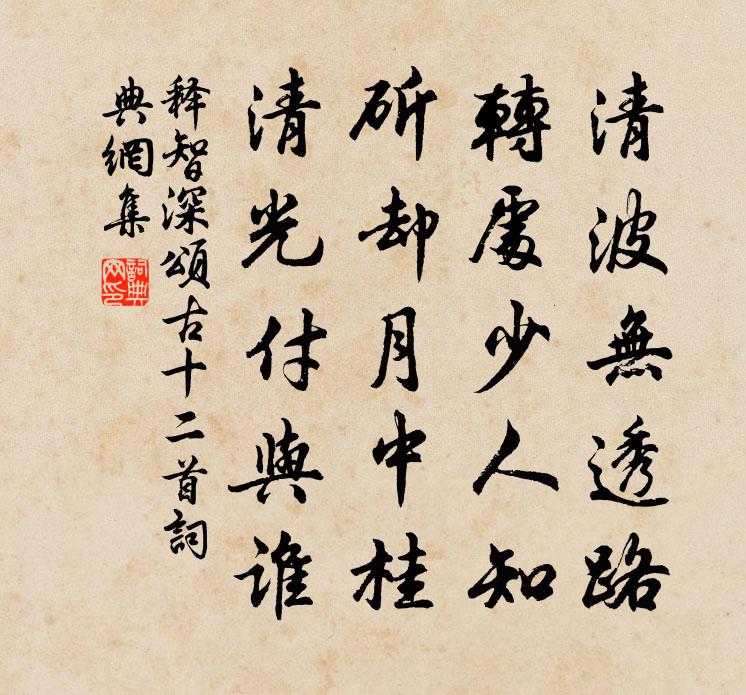 清波無透路
轉處少人知
斫却月中桂
清光付與誰
释智深頌古十二首詞
典網集
詞典網印